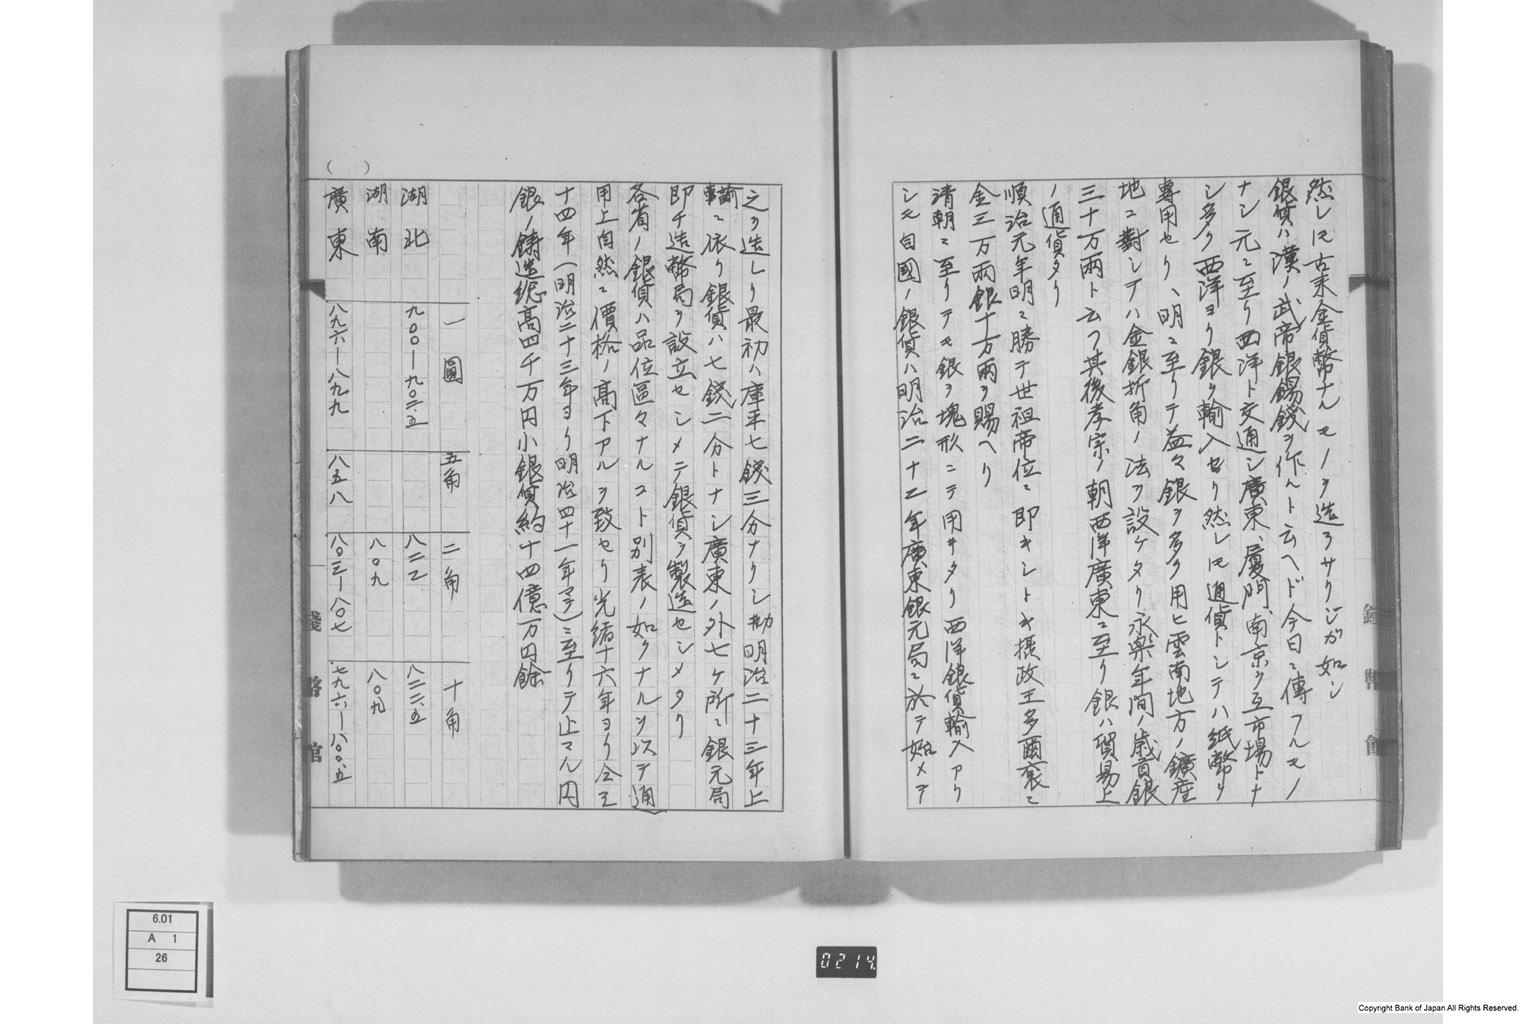 然レ𪜈古来金貨幣ナルモノヲ造ラサリシガ如シ
銀貨ハ漢ノ武帝銀錫錢ヲ作ルト云ヘド今日ニ傳フルモノ
ナシ元ニ至リ西洋ト交通シ廣東、厦門、南京ヲ互市場トナ
シ多ク西洋ヨリ銀ヲ輸入セリ然レ𪜈通貨トシテハ紙幣ヲ
專用セリ、明ニ至リテ益々銀ヲ多ク用ヒ雲南地方ノ鑛産
地ニ對シテハ金銀折角ノ法ヲ設ケタリ永楽年間ノ歳首銀
三十万兩ト云フ其後孝宗ノ朝西洋廣東ニ至リ銀ハ貿易上
ノ通貨タリ
順治元年明ニ勝テ世祖帝位ニ即キシトキ摂政王多爾袞ニ
金三万兩銀十万兩ヲ賜ヘリ
清朝ニ至リテモ銀ヲ塊形ニテ用ヰタリ西洋銀貨輸入アリ
シモ自國ノ銀貨ハ明治二十二年廣東銀元局ニ於テ始メテ
之ヲ造レリ最初ハ庫平七錢三分ナリシガ明治二十三年上
諭ニ依リ銀貨ハ七錢二分トナシ廣東ノ外七ケ所ニ銀元局
即チ造幣局ヲ設立セシメテ銀貨ヲ製造セシメタリ
各省ノ銀貨ハ品位區々ナルコト別表ノ如クナルヲ以テ通
用上自然ニ價格ノ高下アルヲ致セリ光緒十六年ヨリ仝三
十四年(明治二十三年ヨリ明治四十一年マデ)ニ至リテ止マル円
銀ノ鋳造総高四千万円小銀貨約十四億万円餘
一圓 五角 二角 十角
湖北 九〇〇—九〇二.五 八二二 八二二.五
湖南 八〇九 八〇九
廣東 八九六—八九九 八五八 八〇三—八〇七 七九六—八〇〇.五
錢幣館
錢幣館
6.01
A 1
26
0214
Copyright Bank of Japan All Rights Reserved.